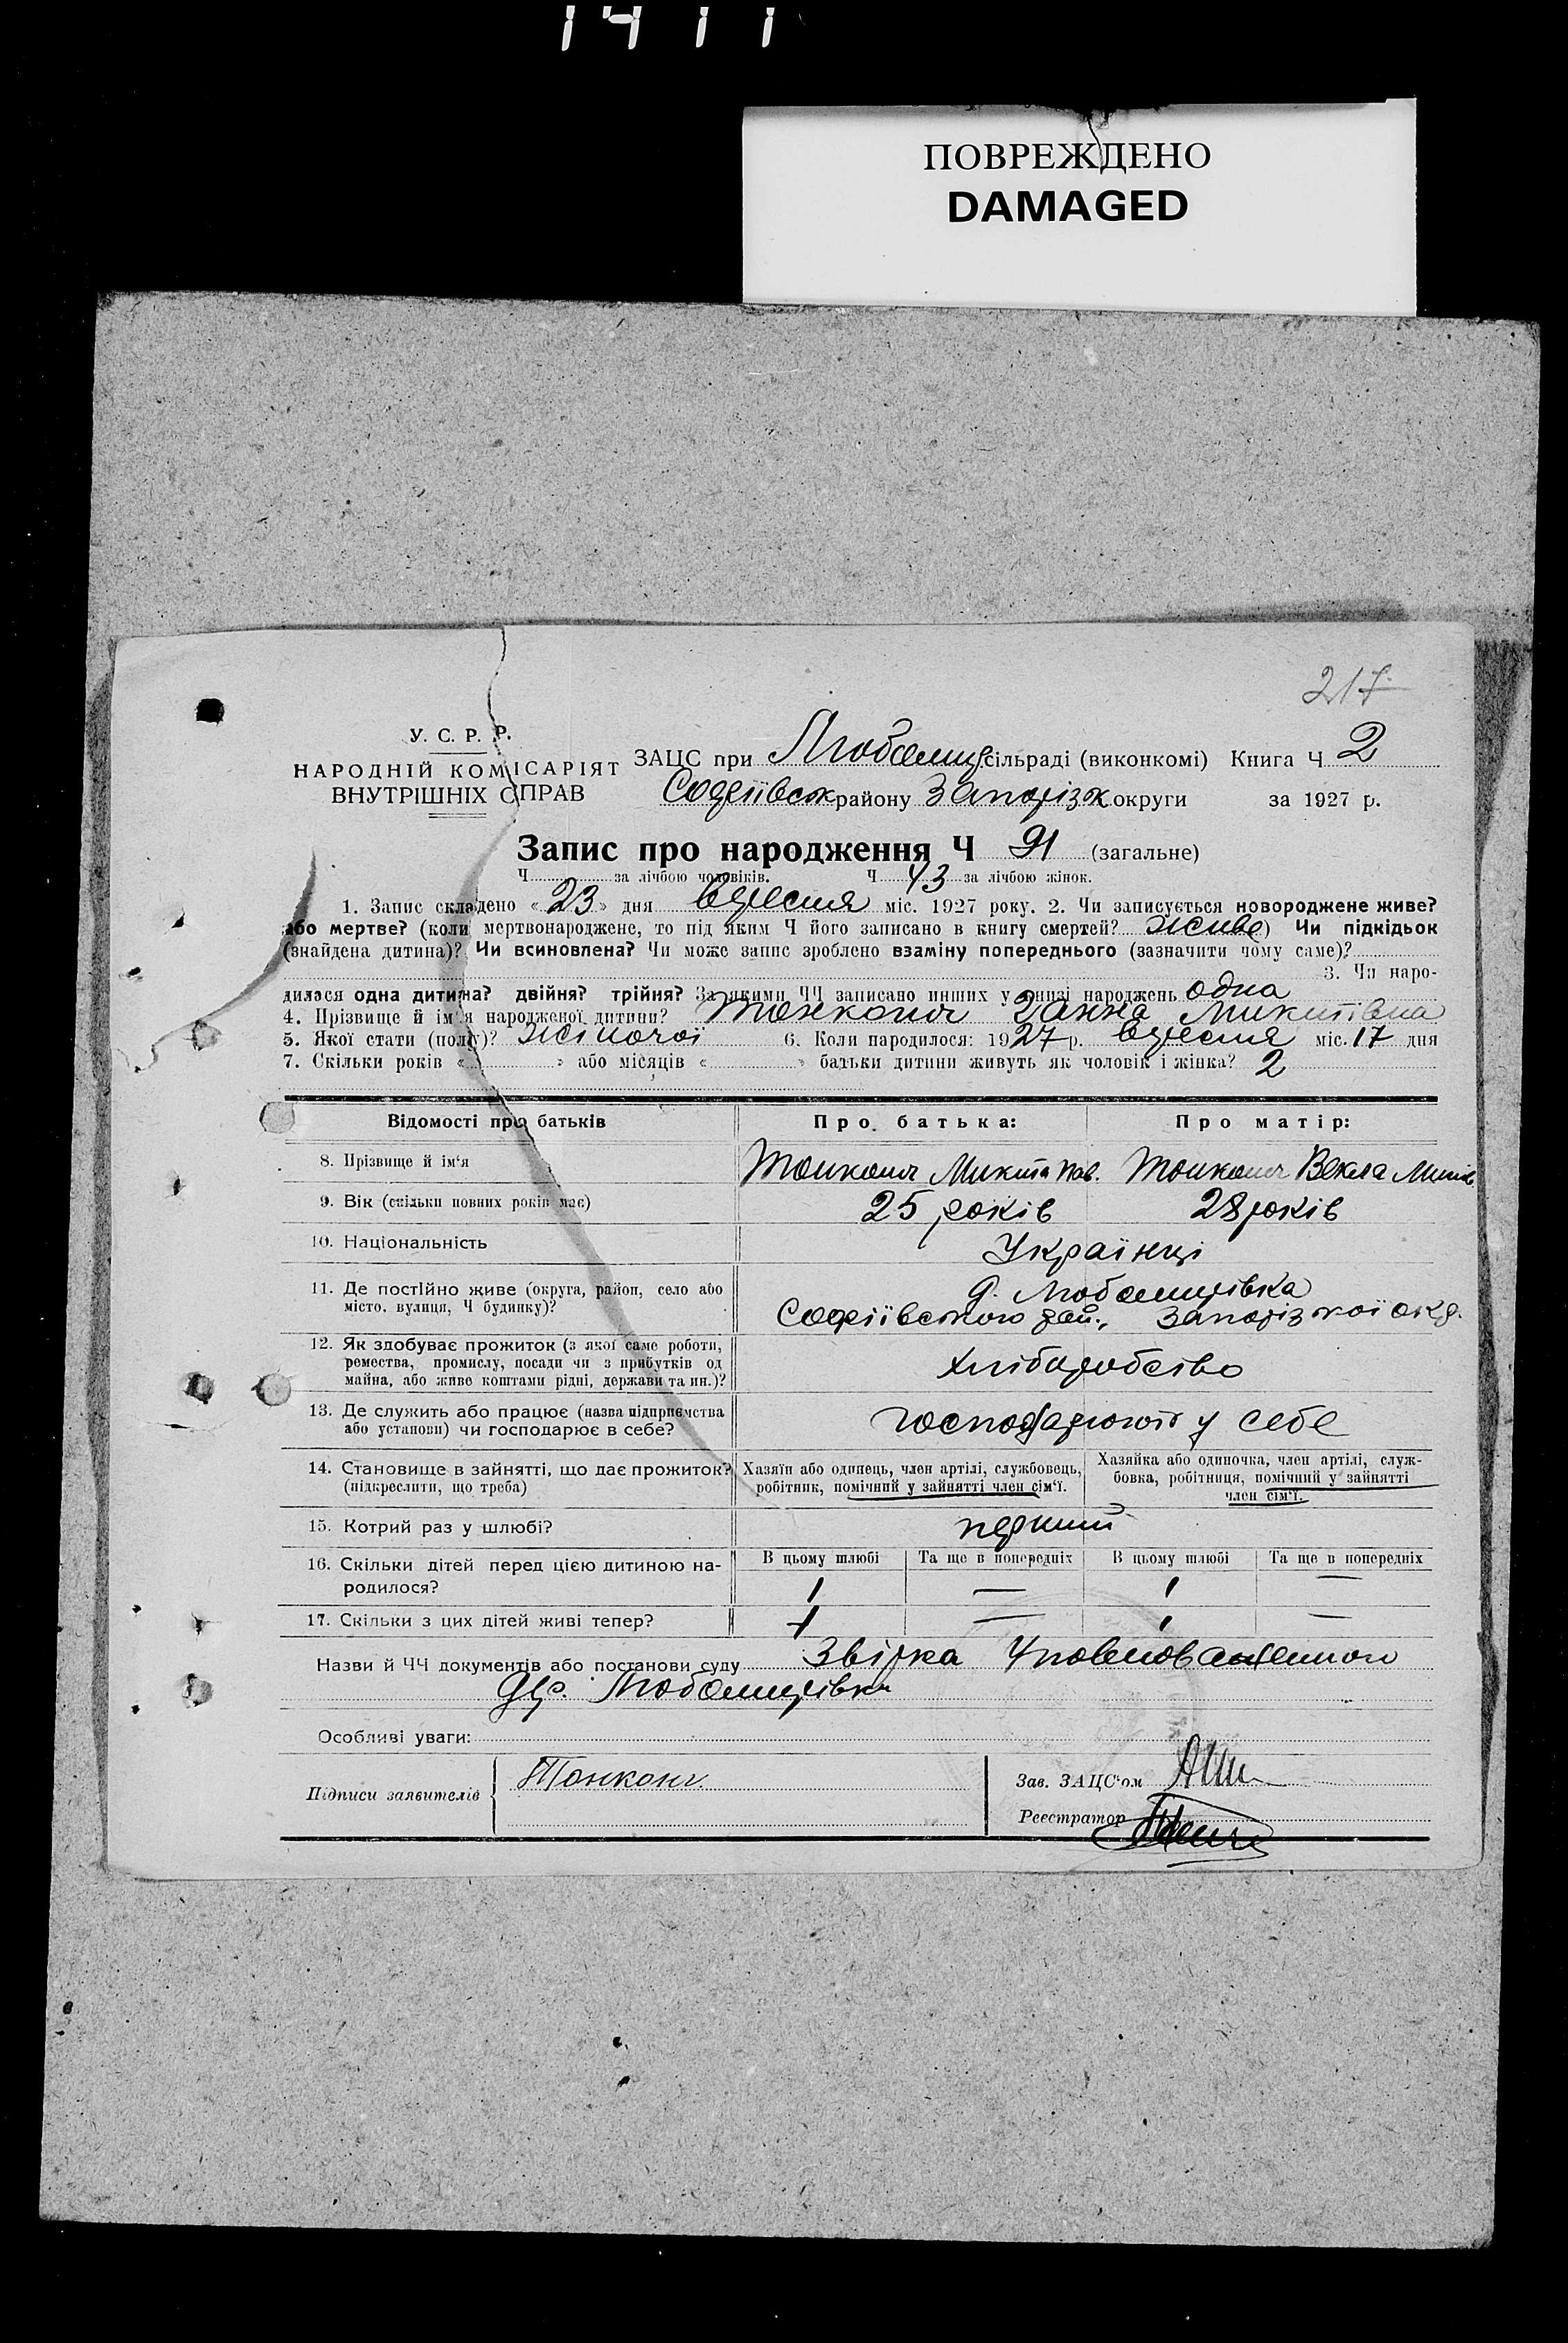 1411
ПОВРЕЖДЕНО
DAMAGED
217
У. С. Р. Р.
НАРОДНІЙ КОМІСАРІЯТ
ВНУТРІШНІХ СПРАВ
ЗАЦС при сільраді (виконкомі) Книга Ч 2
Софіївськ району Запорізьк округи за 1927 р.
Запис про народження Ч 91 (загальне)
Ч за лічбою чоловіків. Ч 43 за лічбою жінок.
1. Запис складено « 23 » дня вересня міс. 1927 року. 2. Чи записується новороджене живе?
або мертве? (коли мертвонароджене, то під яким Ч його записано в книгу смертей? живе) Чи підкідьок
(знайдена дитина)? Чи всиновлена? Чи може запис зроблено взаміну попереднього (зазначити чому саме)?
3. Чи наро-
дилася одна дитина? двійня? трійня? За якими ЧЧ записано инших у книзі народжень одна
4. Прізвище й ім'я народженої дитини? Тонконог Ганна Микитівна
5. Якої стати (полу)? жіночої 6. Коли народилося: 1927 р. вересня міс. 17 дня
7. Скільки років « » або місяців « » батьки дитини живуть як чоловік і жінка? 2
Відомості про батьків Про батька: Про матір:
8. Прізвище й ім'я Тонконог Микита Пав. Тонконог Векла
9. Вік (скільки повних років має) 25 років 28 років
10. Національність Українці
11. Де постійно живе (округа, район, село або
місто, вулиця, Ч будинку)?
Софіївського рай., Запорізької окр.
12. Як здобуває прожиток (з якої саме роботи,
ремества, промислу, посади чи з прибутків од
майна, або живе коштами рідні, держави та ин.)?
хліборобство
13. Де служить або працює (назва підприємства
або установи) чи господарює в себе?
господарюють у себе
14. Становище в зайнятті, що дає прожиток?
(підкреслити, що треба)
Хазяїн або одинець, член артілі, службовець,
робітник, помічний у зайнятті член сім'ї.
Хазяйка або одиночка, член артілі, служ-
бовка, робітниця, помічний у зайнятті
член сім'ї.
15. Котрий раз у шлюбі? перший
16. Скільки дітей перед цією дитиною на-
родилося?
В цьому шлюбі Та ще в попередніх В цьому шлюбі Та ще в попередніх
1 — 1 —
17. Скільки з цих дітей живі тепер? 1 — 1 —
Назви й ЧЧ документів або постанови суду Звірка
Особливі уваги:
Підписи заявителів Тонконог
Зав. ЗАЦС'ом
Реєстратор